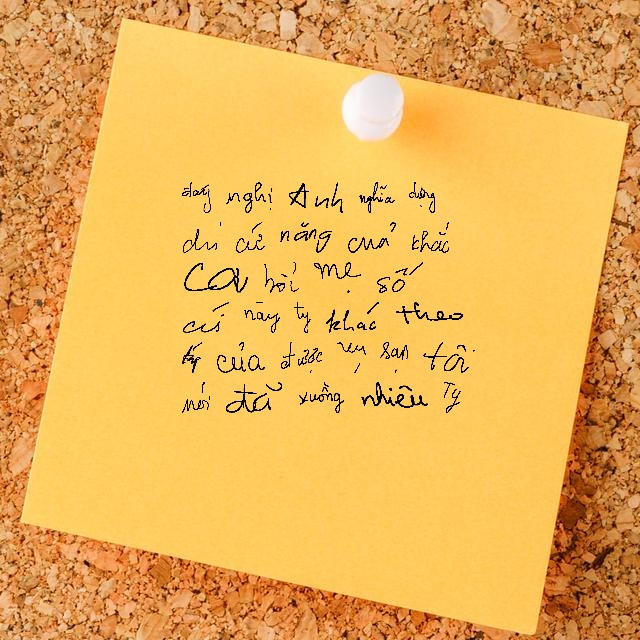 đang nghị Anh nghĩa dụng
cứ năng của khắc
Ca bởi mẹ số
cú này ty khác theo
của được vụ sạn tôi
nói đã xuống nhiều Ty